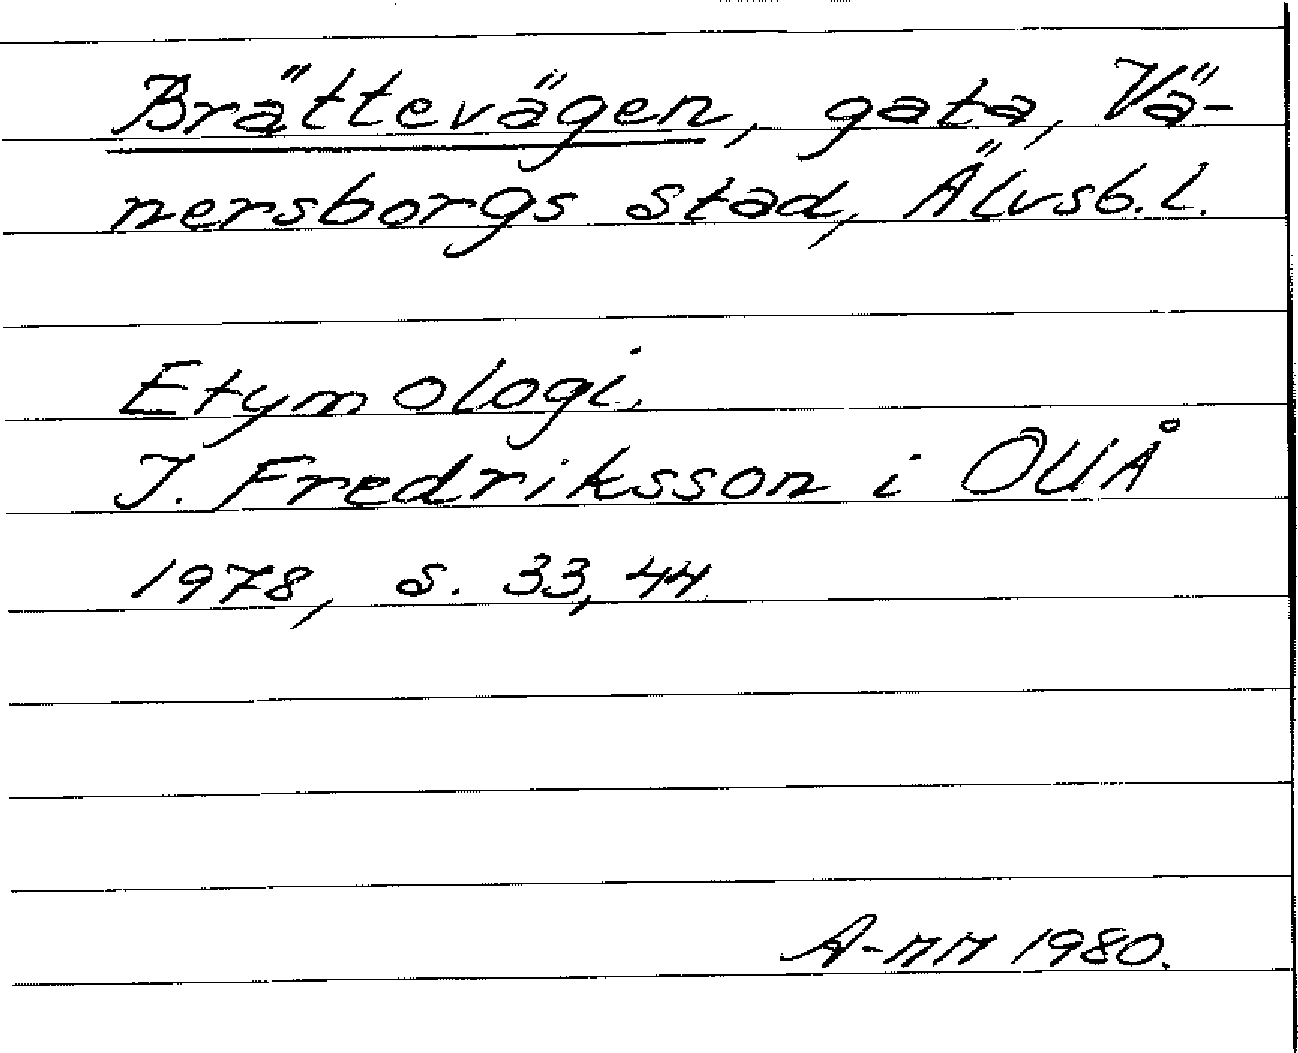 Brättevägen, gata, Vä-
nersborgs stad, Älvsb. l.
Etymologi.
I. Fredriksson i OUÅ
1978, s. 33, 44
A-MM 1980.